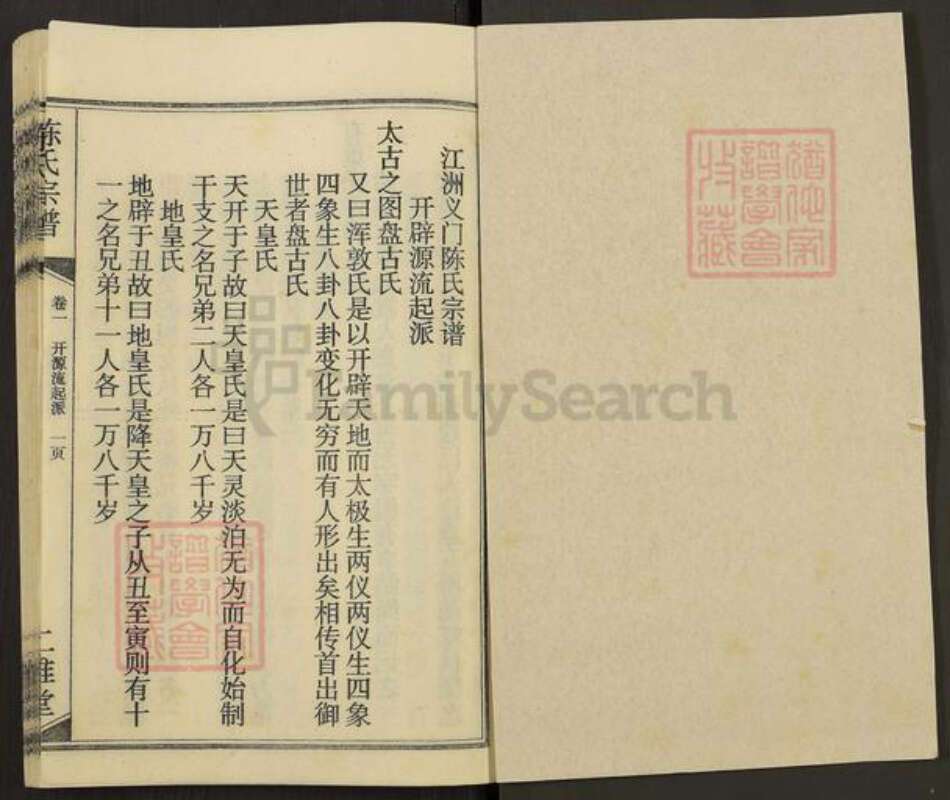 江洲义门陈氏宗谱
开辟源流起派
太古之图盘古氏
又曰浑敦氏是以开辟天地而太极生两仪两仪生四象
四象生八卦八卦变化无穷而有人形出矣相传首出御
世者盘古氏
天皇氏
天开于子故曰天皇氏是曰天灵淡泊无为而自化始制
干支之名兄弟二人各一万八千岁
地皇氏
地辟于丑故曰地皇氏是降天皇之子从丑至寅则有十
一之名兄弟十一人各一万八千岁
陈氏宗谱
卷一 开源流起派 一页
堂
FamilySearch
谱学会
藏